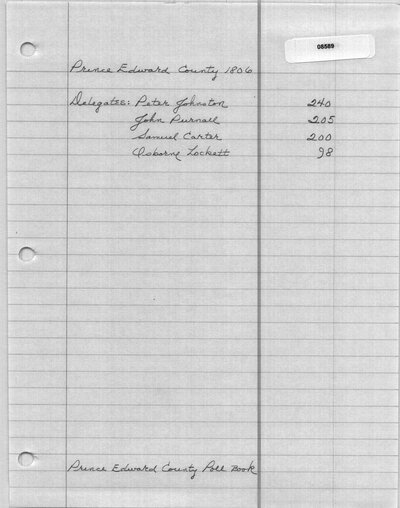 08589
Prince Edward County 1806
Delegates: Peter Johnston 240
John Purnall 205
Samuel Carter 200
Osborne Lockett 98
Prince Edward County Poll Book